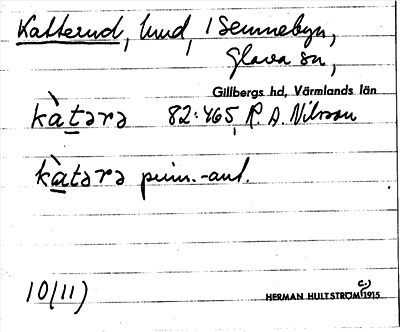 Katterud, lund, i Sennebyn,
Glava sn,
Gillbergs hd, Värmlands län
kàtərə 82:465, R. A. Nilsson
kàtərə prim.-ant.
10(11)
HERMAN HULTSTRÖM 1915